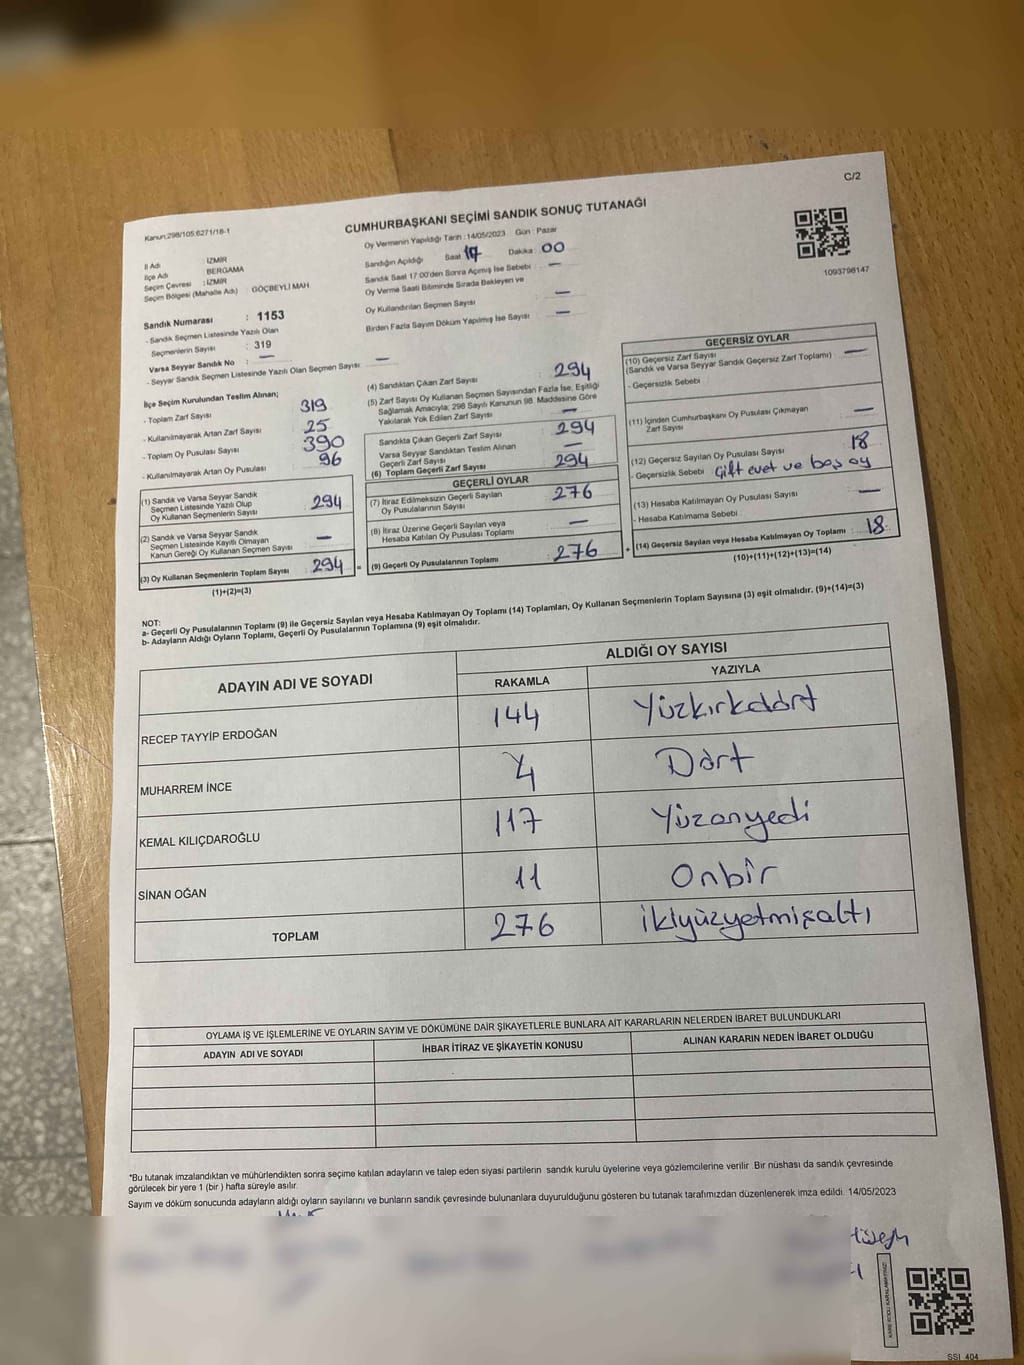 C/2
Kanun:298/105.6271/18-1
CUMHURBAŞKANI SEÇİMİ SANDIK SONUÇ TUTANAĞI
Oy Vermenin Yapıldığı Tarih : 14/05/2023 Gün : Pazar
İl Adı : İZMİR
İlçe Adı : BERGAMA
Seçim Çevresi : İZMİR
Seçim Bölgesi (Mahalle Adı) : GÖÇBEYLİ MAH.
Sandığın Açıldığı Saat 17 Dakika 00
Sandık Saat 17:00'den Sonra Açılmış İse Sebebi —
Oy Verme Saati Bitiminde Sırada Bekleyen ve
Oy Kullandırılan Seçmen Sayısı —
Birden Fazla Sayım Döküm Yapılmış İse Sayısı —
1093796147
Sandık Numarası : 1153
- Sandık Seçmen Listesinde Yazılı Olan
Seçmenlerin Sayısı : 319
Varsa Seyyar Sandık No : —
- Seyyar Sandık Seçmen Listesinde Yazılı Olan Seçmen Sayısı: —
İlçe Seçim Kurulundan Teslim Alınan;
- Toplam Zarf Sayısı 319
- Kullanılmayarak Artan Zarf Sayısı 25
- Toplam Oy Pusulası Sayısı 390
- Kullanılmayarak Artan Oy Pusulası 96
(1) Sandık ve Varsa Seyyar Sandık
Seçmen Listesinde Yazılı Olup
Oy Kullanan Seçmenlerin Sayısı 294
(2) Sandık ve Varsa Seyyar Sandık
Seçmen Listesinde Kayıtlı Olmayan
Kanun Gereği Oy Kullanan Seçmen Sayısı —
(3) Oy Kullanan Seçmenlerin Toplam Sayısı 294 =
(1)+(2)=(3)
(4) Sandıktan Çıkan Zarf Sayısı 294
(5) Zarf Sayısı Oy Kullanan Seçmen Sayısından Fazla İse, Eşitliği
Sağlamak Amacıyla; 298 Sayılı Kanunun 98. Maddesine Göre
Yakılarak Yok Edilen Zarf Sayısı —
Sandıkta Çıkan Geçerli Zarf Sayısı 294
Varsa Seyyar Sandıktan Teslim Alınan
Geçerli Zarf Sayısı —
(6) Toplam Geçerli Zarf Sayısı 294
GEÇERLİ OYLAR
(7) İtiraz Edilmeksizin Geçerli Sayılan
Oy Pusulalarının Sayısı 276
(8) İtiraz Üzerine Geçerli Sayılan veya
Hesaba Katılan Oy Pusulası Toplamı —
(9) Geçerli Oy Pusulalarının Toplamı 276 +
GEÇERSİZ OYLAR
(10) Geçersiz Zarf Sayısı
(Sandık ve Varsa Seyyar Sandık Geçersiz Zarf Toplamı) —
- Geçersizlik Sebebi
(11) İçinden Cumhurbaşkanı Oy Pusulası Çıkmayan
Zarf Sayısı —
(12) Geçersiz Sayılan Oy Pusulası Sayısı 18
- Geçersizlik Sebebi Çift evet ve boş oy
(13) Hesaba Katılmayan Oy Pusulası Sayısı —
- Hesaba Katılmama Sebebi
(14) Geçersiz Sayılan veya Hesaba Katılmayan Oy Toplamı : 18.
(10)+(11)+(12)+(13)=(14)
NOT:
a- Geçerli Oy Pusulalarının Toplamı (9) ile Geçersiz Sayılan veya Hesaba Katılmayan Oy Toplamı (14) Toplamları, Oy Kullanan Seçmenlerin Toplam Sayısına (3) eşit olmalıdır. (9)+(14)=(3)
b- Adayların Aldığı Oyların Toplamı, Geçerli Oy Pusulalarının Toplamına (9) eşit olmalıdır.
ADAYIN ADI VE SOYADI ALDIĞI OY SAYISI
RAKAMLA YAZIYLA
RECEP TAYYİP ERDOĞAN 144 Yüzkırkdört
MUHARREM İNCE 4 Dört
KEMAL KILIÇDAROĞLU 117 Yüzonyedi
SİNAN OĞAN 11 Onbir
TOPLAM 276 ikiyüzyetmişaltı
OYLAMA İŞ VE İŞLEMLERİNE VE OYLARIN SAYIM VE DÖKÜMÜNE DAİR ŞİKAYETLERLE BUNLARA AİT KARARLARIN NELERDEN İBARET BULUNDUKLARI
ADAYIN ADI VE SOYADI İHBAR İTİRAZ VE ŞİKAYETİN KONUSU ALINAN KARARIN NEDEN İBARET OLDUĞU
*Bu tutanak imzalandıktan ve mühürlendikten sonra seçime katılan adayların ve talep eden siyasi partilerin sandık kurulu üyelerine veya gözlemcilerine verilir. Bir nüshası da sandık çevresinde
görülecek bir yere 1 (bir ) hafta süreyle asılır.
Sayım ve döküm sonucunda adayların aldığı oyların sayılarını ve bunların sandık çevresinde bulunanlara duyurulduğunu gösteren bu tutanak tarafımızdan düzenlenerek imza edildi. 14/05/2023
KARE KODU KARALAMAYINIZ!
SSI_404